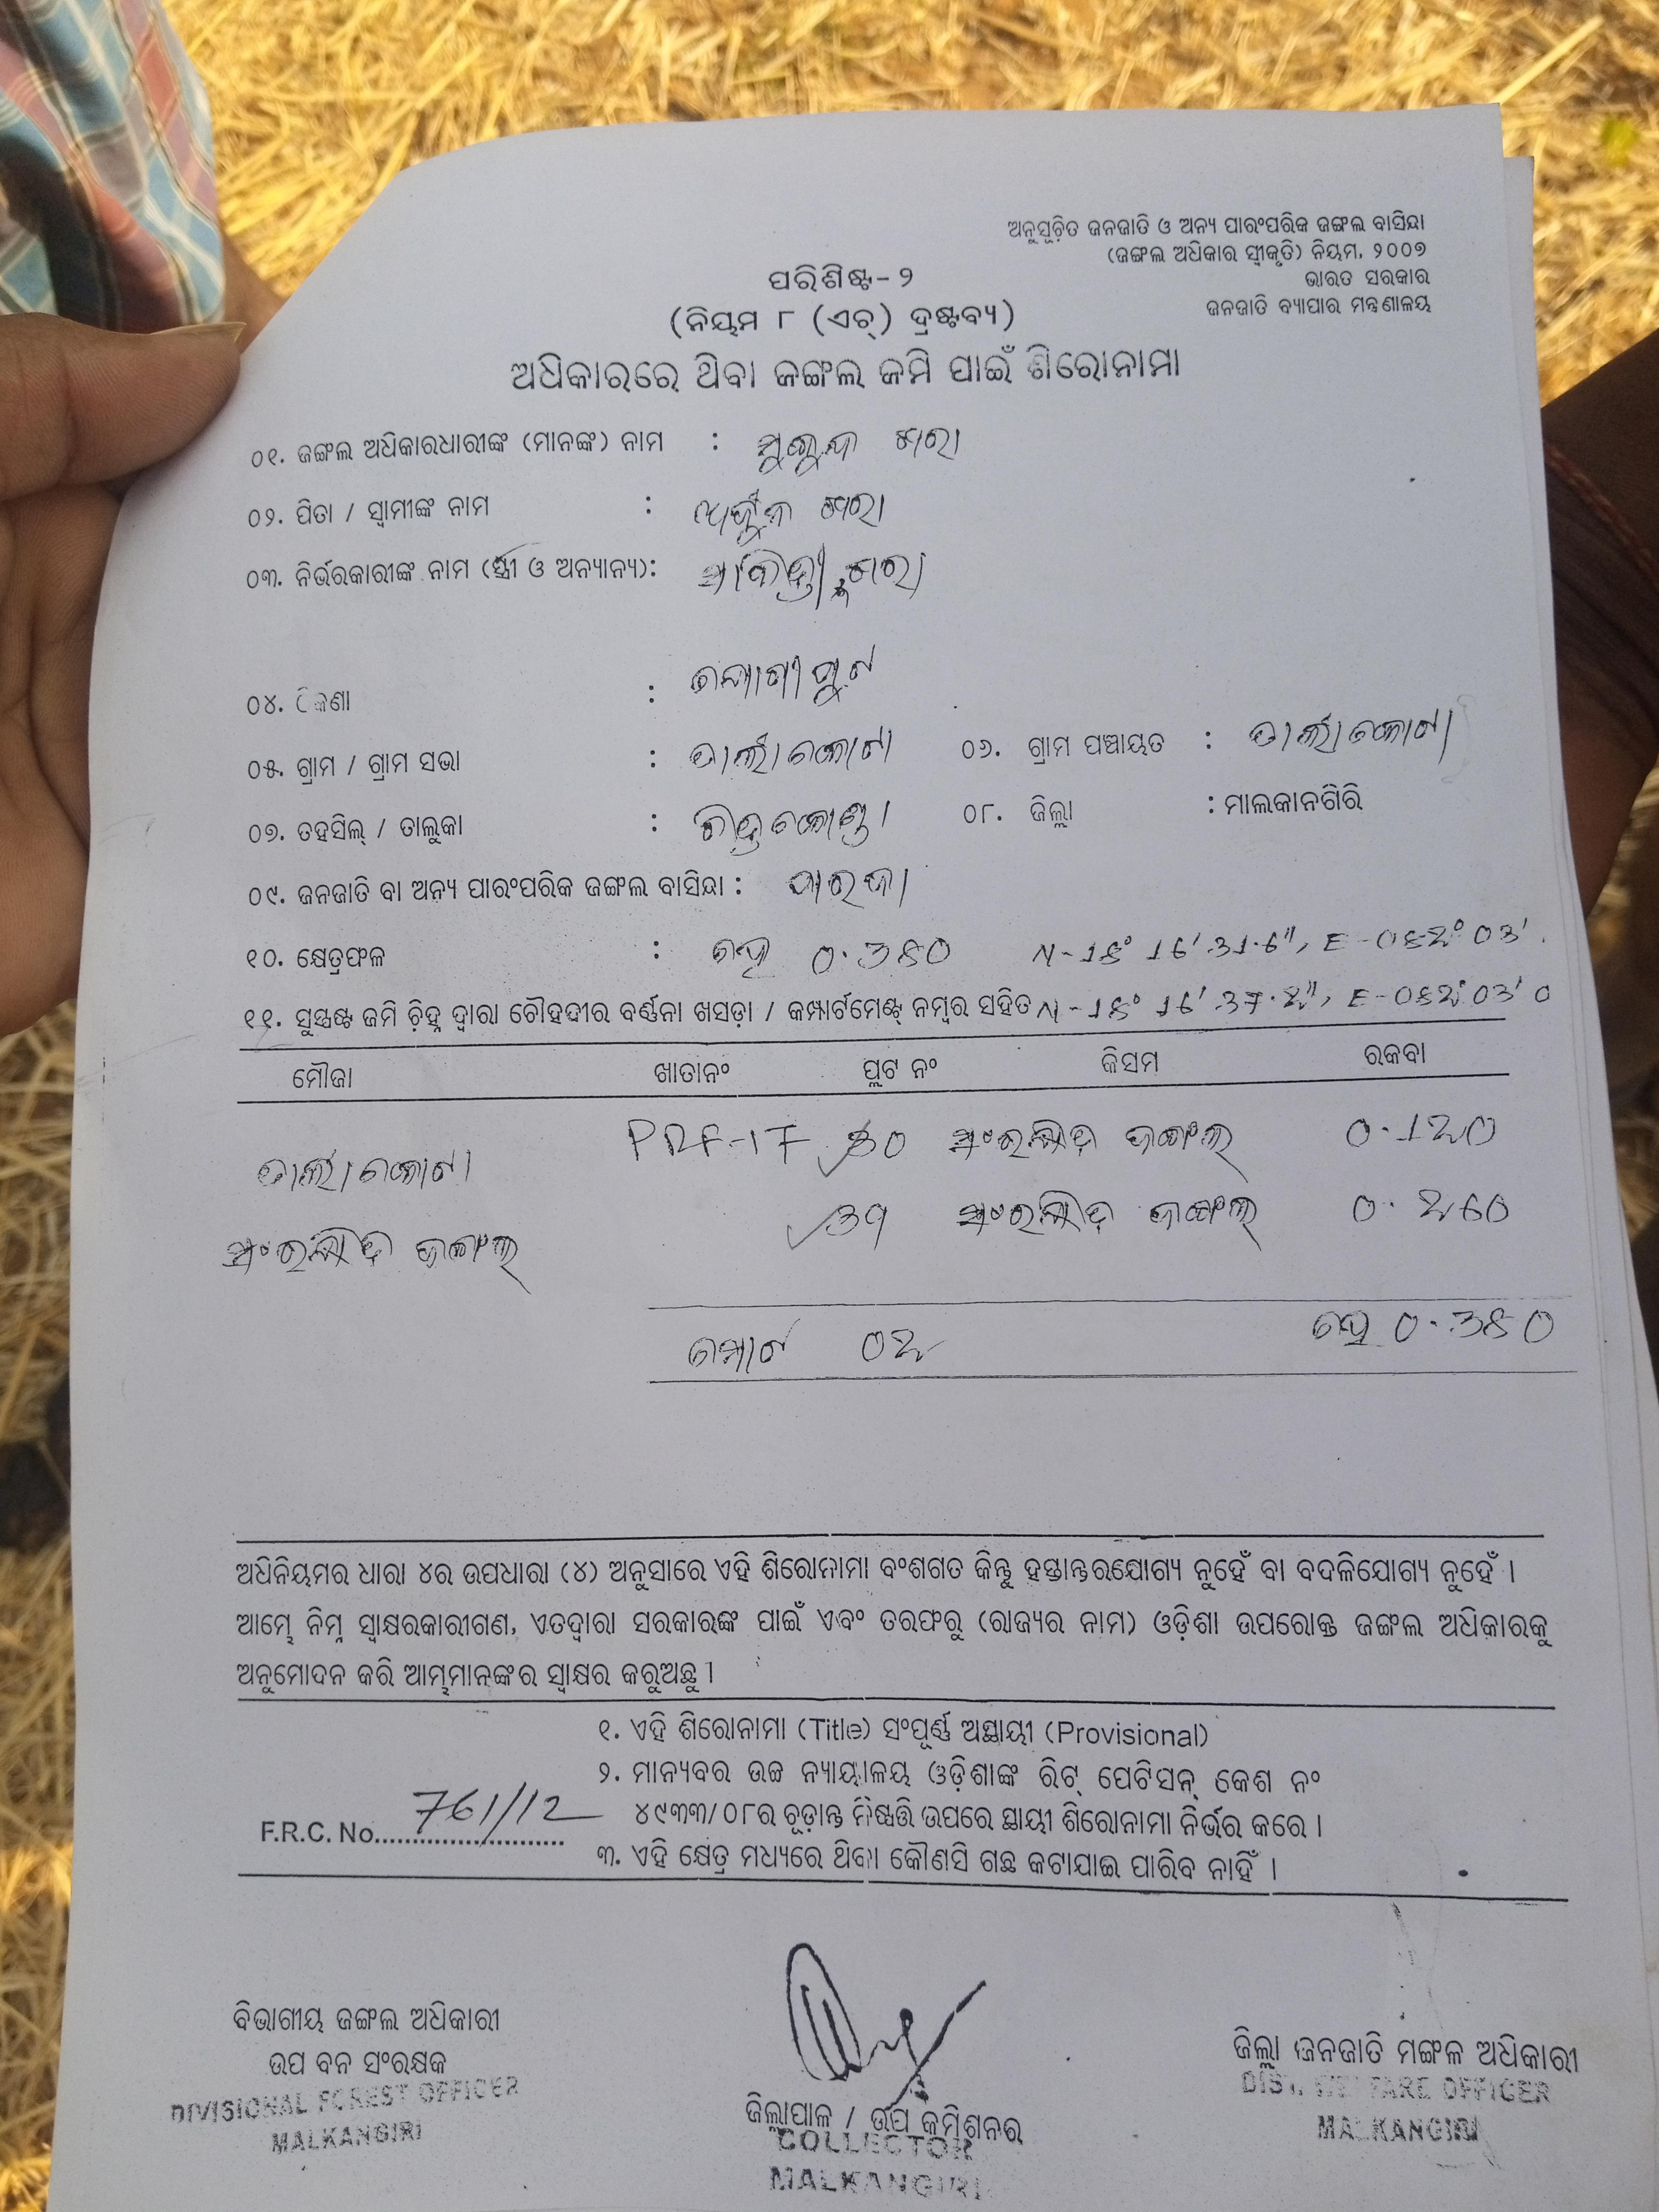 ଅନୁସୂଚିତ ଜନଜାତି ଓ ଅନ୍ୟ ପାରଂପରିକ ଜଙ୍ଗଲ ବାସିନ୍ଦା
(ଜଙ୍ଗଲ ଅଧିକାର ସ୍ୱୀକୃତି) ନିୟମ, ୨୦୦୭
ଭାରତ ସରକାର
ଜନଜାତି ବ୍ୟାପାର ମନ୍ତ୍ରଣାଳୟ
ପରିଶିଷ୍ଟ-୨
(ନିୟମ ୮ (ଏଚ୍) ଦ୍ରଷ୍ଟବ୍ୟ)
ଅଧିକାରରେ ଥିବା ଜଙ୍ଗଲ ଜମି ପାଇଁ ଶିରୋନାମା
୦୧. ଜଙ୍ଗଲ ଅଧିକାରଧାରୀଙ୍କ (ମାନଙ୍କ) ନାମ :
୦୨. ପିତା / ସ୍ୱାମୀଙ୍କ ନାମ : ଅର୍ଜୁନ
୦୩. ନିର୍ଭରକାରୀଙ୍କ ନାମ (ସ୍ତ୍ରୀ ଓ ଅନ୍ୟାନ୍ୟ):
୦୪. ଠିକଣା :
୦୫. ଗ୍ରାମ / ଗ୍ରାମ ସଭା : ୦୬. ଗ୍ରାମ ପଞ୍ଚାୟତ :
୦୭. ତହସିଲ୍ / ତାଲୁକା : ୦୮. ଜିଲ୍ଲା : ମାଲକାନଗିରି
୦୯. ଜନଜାତି ବା ଅନ୍ୟ ପାରଂପରିକ ଜଙ୍ଗଲ ବାସିନ୍ଦା : ପାରଜା
୧୦. କ୍ଷେତ୍ରଫଳ : ହେ 0.380 N-18° 16' 31.6", E-082° 03'
୧୧. ସୁସ୍ପଷ୍ଟ ଜମି ଚିହ୍ନ ଦ୍ୱାରା ଚୌହଦୀର ବର୍ଣ୍ଣନା ଖସଡ଼ା / କମ୍ପାର୍ଟମେଣ୍ଟ ନମ୍ବର ସହିତ N-18° 16' 37.2", E-082° 03' 0
ମୌଜା ଖାତାନଂ ପ୍ଲଟ ନଂ କିସମ ରକବା
PRF-17 30 ସଂରକ୍ଷିତ ଜଙ୍ଗଲ 0.120
39 ସଂରକ୍ଷିତ ଜଙ୍ଗଲ 0.260
ସଂରକ୍ଷିତ ଜଙ୍ଗଲ
ମୋଟ 02 ହେ 0.380
ଅଧିନିୟମର ଧାରା ୪ର ଉପଧାରା (୪) ଅନୁସାରେ ଏହି ଶିରୋନାମା ବଂଶଗତ କିନ୍ତୁ ହସ୍ତାନ୍ତରଯୋଗ୍ୟ ନୁହେଁ ବା ବଦଳିଯୋଗ୍ୟ ନୁହେଁ ।
ଆମ୍ଭେ ନିମ୍ନ ସ୍ୱାକ୍ଷରକାରୀଗଣ, ଏତଦ୍ୱାରା ସରକାରଙ୍କ ପାଇଁ ଏବଂ ତରଫରୁ (ରାଜ୍ୟର ନାମ) ଓଡ଼ିଶା ଉପରୋକ୍ତ ଜଙ୍ଗଲ ଅଧିକାରକୁ
ଅନୁମୋଦନ କରି ଆମ୍ଭମାନଙ୍କର ସ୍ୱାକ୍ଷର କରୁଅଛୁ ।
୧. ଏହି ଶିରୋନାମା (Title) ସଂପୂର୍ଣ୍ଣ ଅସ୍ଥାୟୀ (Provisional)
୨. ମାନ୍ୟବର ଉଚ୍ଚ ନ୍ୟାୟାଳୟ ଓଡ଼ିଶାଙ୍କ ରିଟ୍ ପେଟିସନ୍ କେଶ ନଂ
୪୯୩୩/୦୮ର ଚୂଡ଼ାନ୍ତ ନିଷ୍ପତ୍ତି ଉପରେ ସ୍ଥାୟୀ ଶିରୋନାମା ନିର୍ଭର କରେ ।
F.R.C. No. 761/12
୩. ଏହି କ୍ଷେତ୍ର ମଧ୍ୟରେ ଥିବା କୌଣସି ଗଛ କଟାଯାଇ ପାରିବ ନାହିଁ ।
ବିଭାଗୀୟ ଜଙ୍ଗଲ ଅଧିକାରୀ
ଉପ ବନ ସଂରକ୍ଷକ
DIVISIONAL FOREST OFFICER
MALKANGIRI
ଜିଲ୍ଲାପାଳ / ଉପ କମିଶନର
COLLECTOR
MALKANGIRI
ଜିଲ୍ଲା ଜନଜାତି ମଙ୍ଗଳ ଅଧିକାରୀ
DIST. WELFARE OFFICER
MALKANGIRI